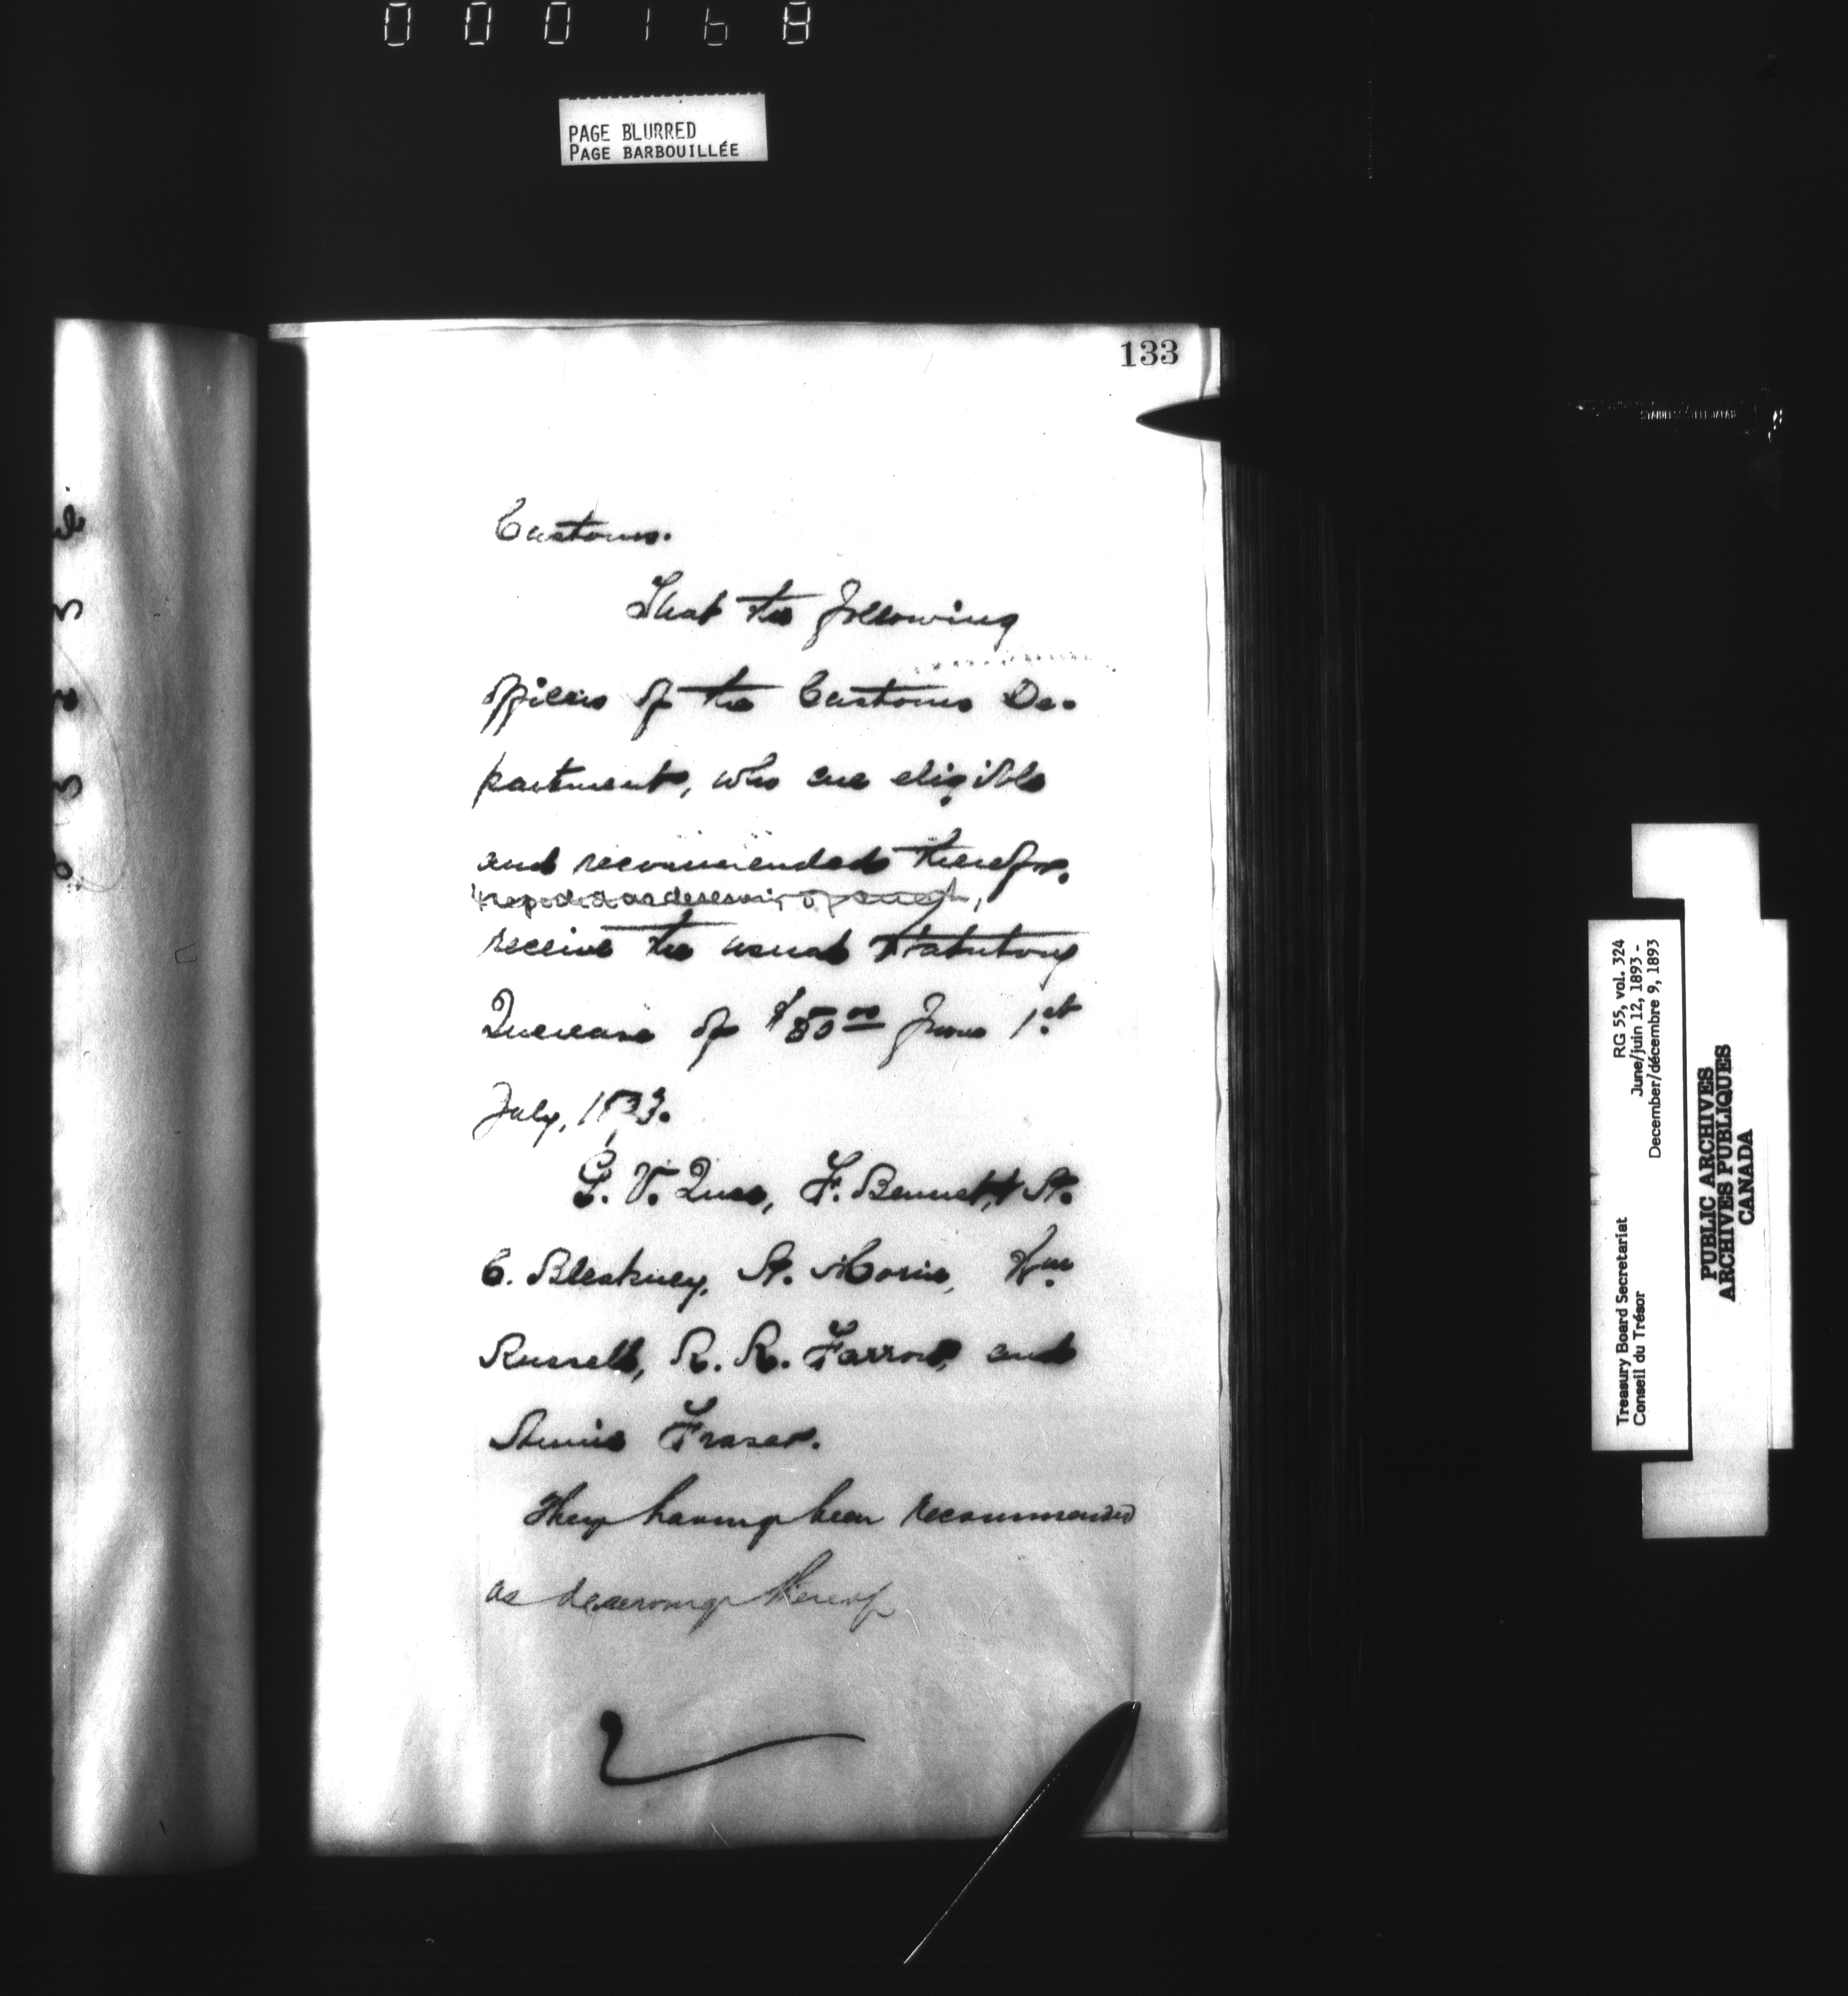 000168
PAGE BLURRED
PAGE BARBOUILLÉE
133
Customs.
That the following
officers of the Customs De-
partment, who are eligible
and recommended therefor,
receive the usual Statutory
Increase of $50 00 from 1st
July, 1893.
V. F. Bennett, A.
C. Bleakney, A. Wm
Russell, R. R. Farrow, and
Annie Fraser.
They having been recommended
as deserving thereof
RG 55, vol. 324
June/juin 12, 1893 -
December/décembre 9, 1893
Treasury Board Secretariat
Conseil du Trésor
PUBLIC ARCHIVES
ARCHIVES PUBLIQUES
CANADA